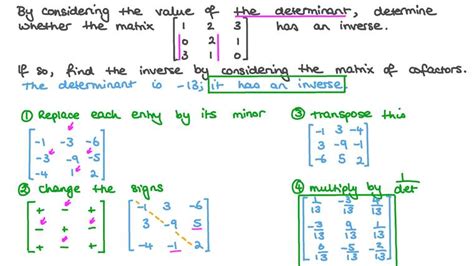 By considering the value of the determinant, determine
whether the matrix [1 2 3
0 2 1
3 1 0] has an inverse.
If so, find the inverse by considering the matrix of cofactors.
The determinant is -13; it has an inverse.
① Replace each entry by its minor
-1 -3 -6
-3 -9 -5
-4 1 2
② change the signs
+ - +
- + -
+ - +
-1 3 -6
3 -9 5
-4 -1 2
③ transpose this
-1 3 -4
3 -9 -1
-6 5 2
④ multiply by 1/det
1/13 -3/13 4/13
-3/13 9/13 1/13
6/13 -5/13 -2/13